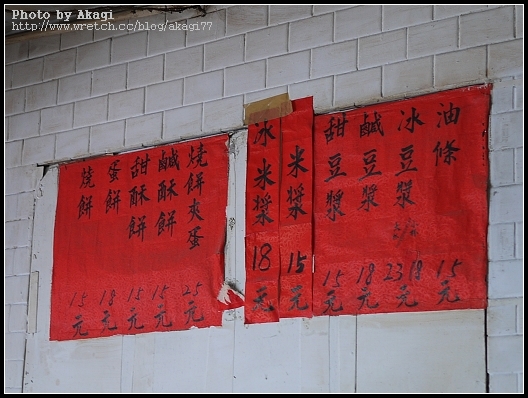 Photo by Akagi
http://www.wretch.cc/blog/akagi77
油條 15元
冰豆漿 23 18元
鹹豆漿 18元
甜豆漿 15元
米漿 15元
冰米漿 18元
燒餅夾蛋 25元
鹹酥餅 15元
甜酥餅 15元
蛋餅 18元
燒餅 15元